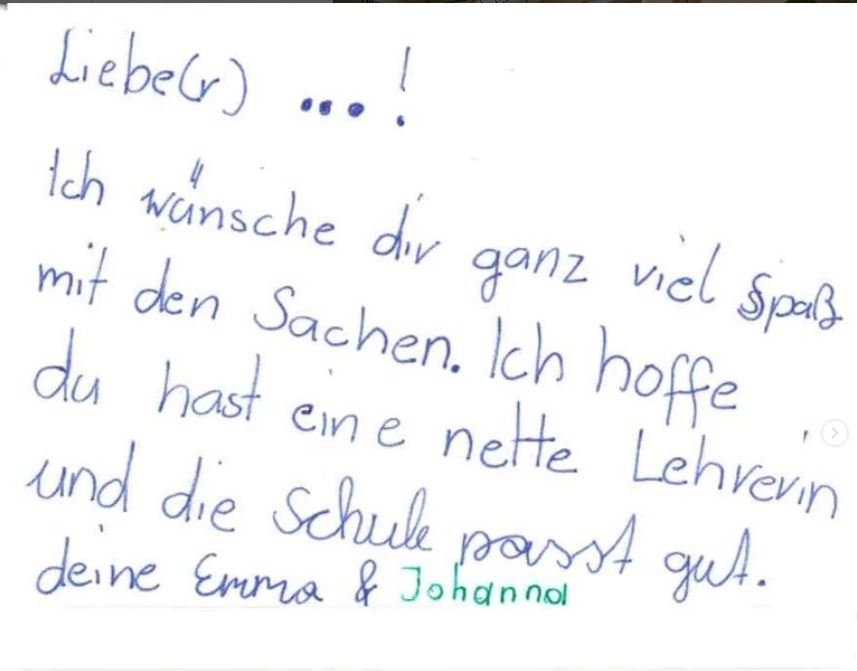 Liebe(r) ...!
Ich wünsche dir ganz viel Spaß
mit den Sachen. Ich hoffe
du hast eine nette Lehrerin
und die Schule passt gut.
deine Emma & Johanna